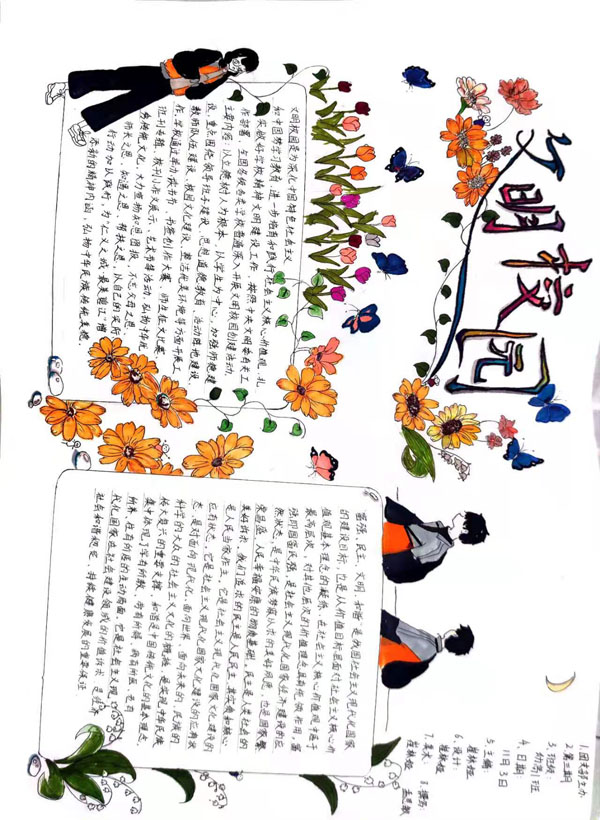 文明校园
文明校园是为深化中国特色社会主义
和中国梦学习教育,进一步培育和践行社会主义核心价值观,扎
实做好学校精神文明建设工作,按照中央文明委有关工
作部署,在国各级各类学校普遍深入开展文明校园创建活动。
主要内容:以立德树人为根本,以学生为中心,加强师德建
设,重点围绕领导班子建设、思想道德教育、活动阵地建设、
教师队伍建设、校园文化建设、整洁优美环境等方面开展工
作。学校通过举办读书节、书签创作大赛、师生征文比赛、
班刊专辑、校刊
秀传统文化,大力宣扬知恩图报,不忘父母之恩、
师长之恩、知遇之恩、帮扶之恩,从自己的实际
行动加以践行,为
的精神内涵,弘扬中华民族传统美德。
富强、民主、文明、和谐,是我国社会主义现代化国家
的建设目标,也是从价值目标层面对社会主义核心价
值观基本理念的凝练,在社会主义核心价值观中居于
最高层次,对其他层次的价值理念具有统领作用。富
强即国富民强,是社会主义现代化国家经济建设的应
然状态,是中华民族梦寐以求的美好夙愿,也是国家繁
荣昌盛、人民幸福安康的物质基础。民主是人类社会的
美好诉求。我们追求的民主是人民民主,其实质和核心
是人民当家作主。它是社会主义现代化国家文化建设的
应有状态,它是社会主义现代化国家文化建设的应有状
态,是对面向现代化、面向世界、面向未来的,民族的
科学的大众的社会主义文化的概括,是实现中华民族
伟大复兴的重要支撑。和谐是中国传统文化的基本理念,
集中体现了学有所教、劳有所得、病有所医、老有
所养、住有所居的生动局面。它是社会主义现
代化国家在社会建设领域的价值诉求,是经济
社会和谐稳定、持续健康发展的重要保证
1.团支部主办
2.第三期
3.班级:
幼高1班
4.日期
11月3日
5.主编:
6.设计:
7.美术:
8.